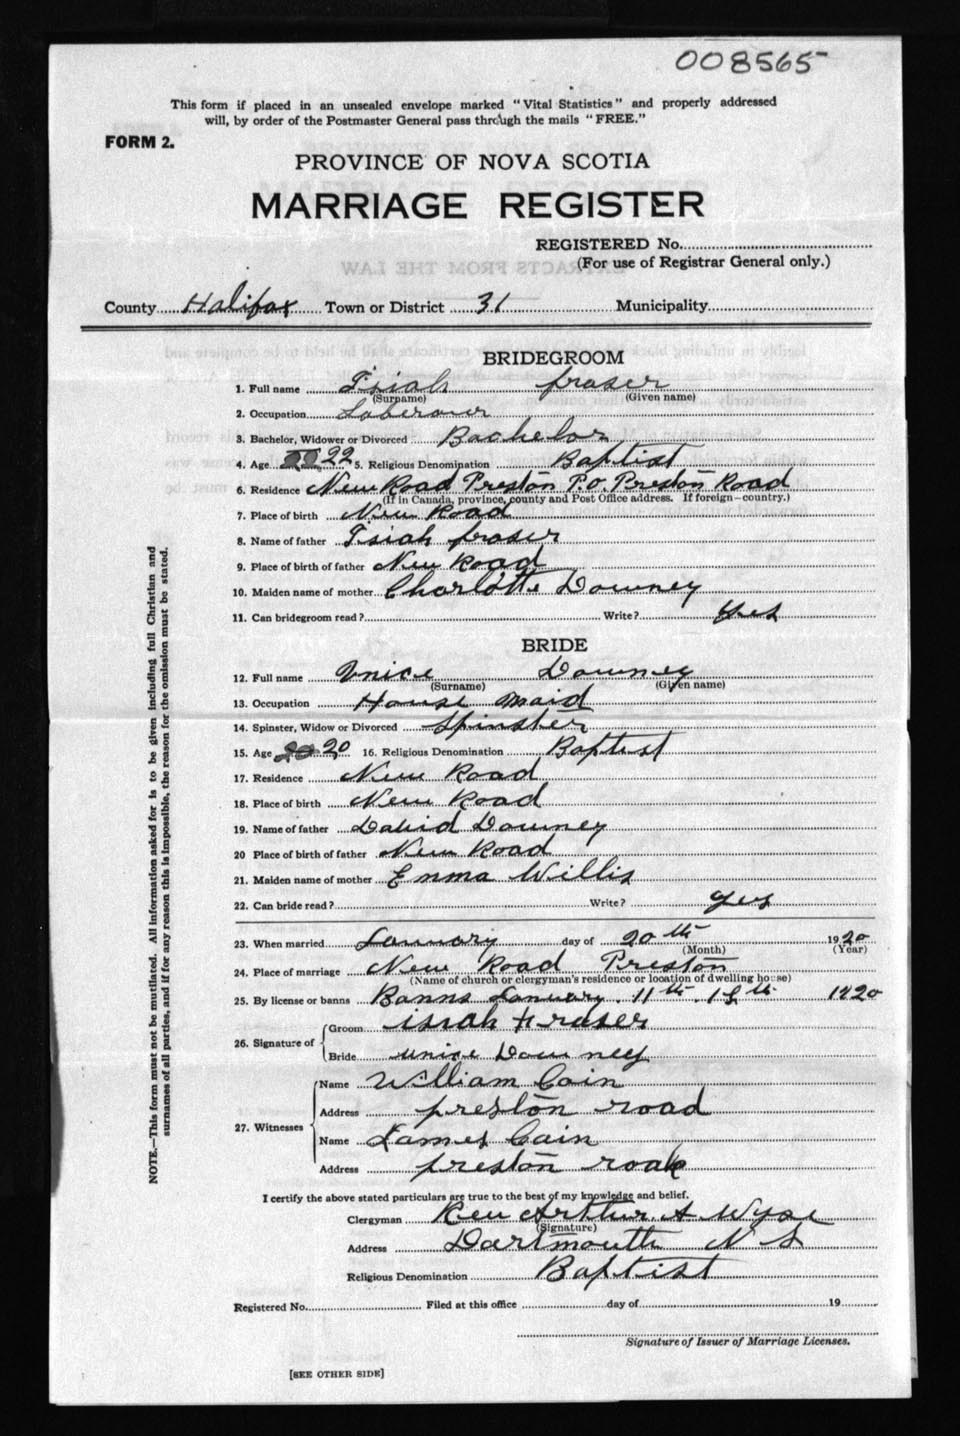 008565
This form if placed in an unsealed envelope marked "Vital Statistics" and properly addressed
will, by order of the Postmaster General pass through the mails "FREE."
FORM 2.
PROVINCE OF NOVA SCOTIA
MARRIAGE REGISTER
REGISTERED No.
(For use of Registrar General only.)
County Halifax Town or District 31 Municipality
BRIDEGROOM
1. Full name Isiah fraser
(Surname) (Given name)
2. Occupation Laberour
3. Bachelor, Widower or Divorced Bachelor
4. Age 22 5. Religious Denomination Baptist
6. Residence New Road Preston P.O. Preston Road
(If in Canada, province, county and Post Office address. If foreign—country.)
7. Place of birth New Road
8. Name of father Isiah fraser
9. Place of birth of father New Road
10. Maiden name of mother Charlotte Downey
11. Can bridegroom read? Write? yes
BRIDE
12. Full name Unice Downey
(Surname) (Given name)
13. Occupation House maid
14. Spinster, Widow or Divorced Spinster
15. Age 20 16. Religious Denomination Baptist
17. Residence New Road
18. Place of birth New Road
19. Name of father David Downey
20 Place of birth of father New Road
21. Maiden name of mother Emma Willis
22. Can bride read? Write? yes
23. When married January day of 20th 1920
(Month) (Year)
24. Place of marriage New Road Preston
(Name of church or clergyman's residence or location of dwelling house)
25. By license or banns Banns January. 11th. 18th. 1920
26. Signature of Groom isiah Fraser
Bride unice Downey
27. Witnesses Name William Cain
Address preston road
Name James Cain
Address preston road
I certify the above stated particulars are true to the best of my knowledge and belief.
Clergyman Rev Arthur. A Wyse
(Signature)
Address Dartmouth N S
Religious Denomination Baptist
Registered No. Filed at this office day of 19
Signature of Issuer of Marriage Licenses.
[SEE OTHER SIDE]
NOTE.—This form must not be mutilated. All information asked for is to be given including full Christian and
surnames of all parties, and if for any reason this is impossible, the reason for the omission must be stated.